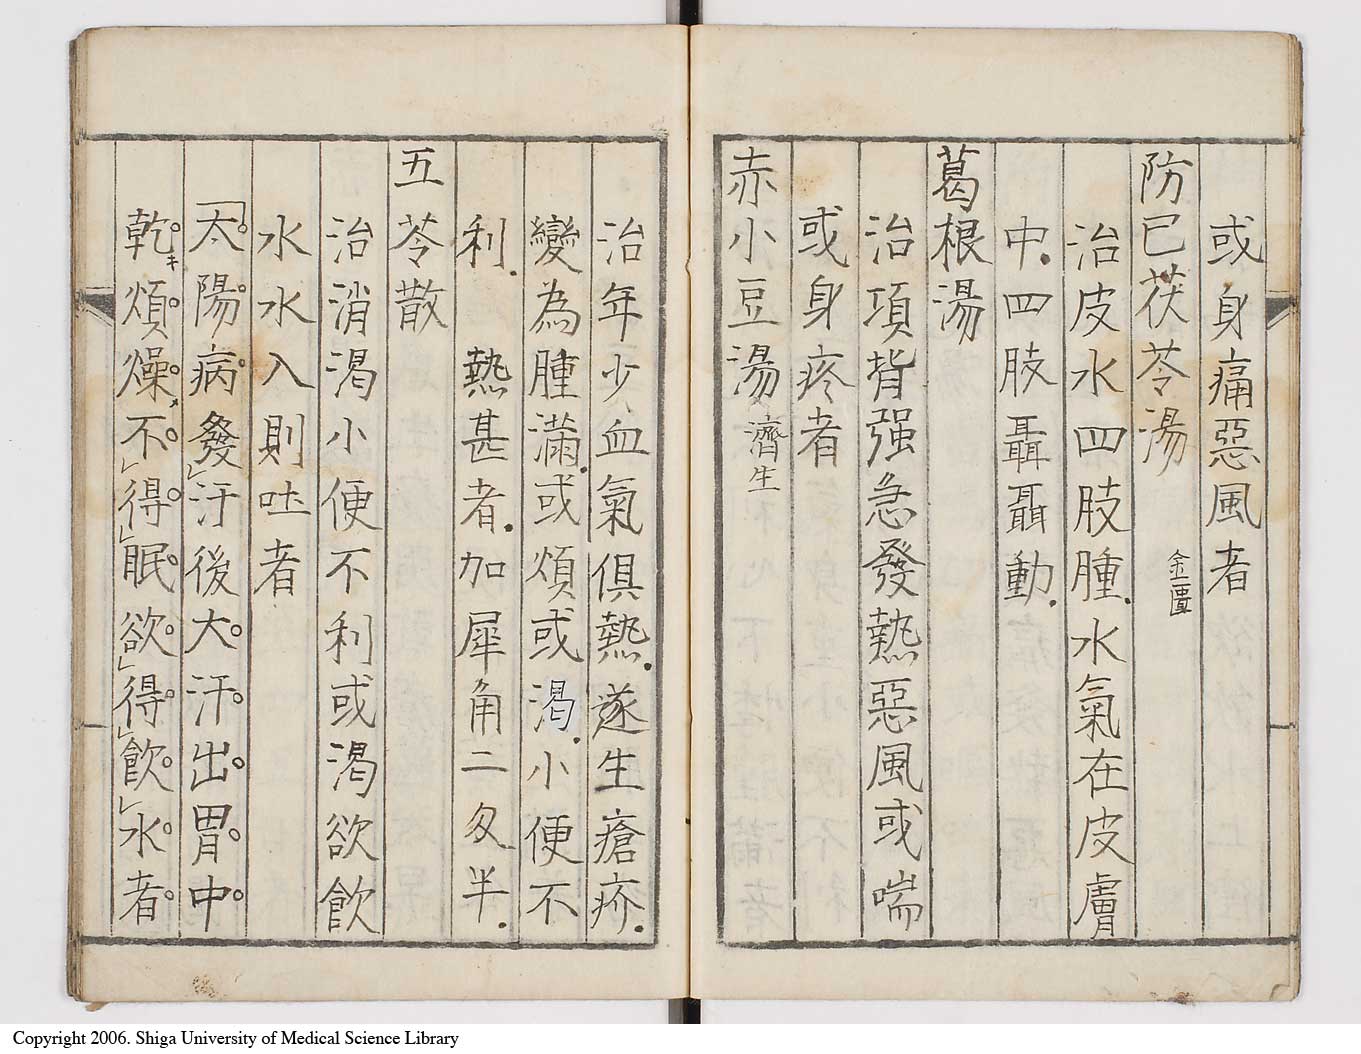 或身痛惡風者
防已茯苓湯 金匱
治皮水四肢腫.水氣在皮膚
中.四肢聶聶動.
葛根湯
治項背强急發熱惡風或喘
或身疼者
赤小豆湯 濟生
治年少血氣俱熱.遂生瘡疥.
變為腫滿.或煩或渴.小便不
利. 熱甚者.加犀角二匁半.
五苓散
治消渴小便不利或渴欲飲
水水入則吐者
「太陽病發汗後大汗出胃中
乾キ煩燥メ不レ得レ眠欲レ得レ飲レ水者
Copyright 2006. Shiga University of Medical Science Library